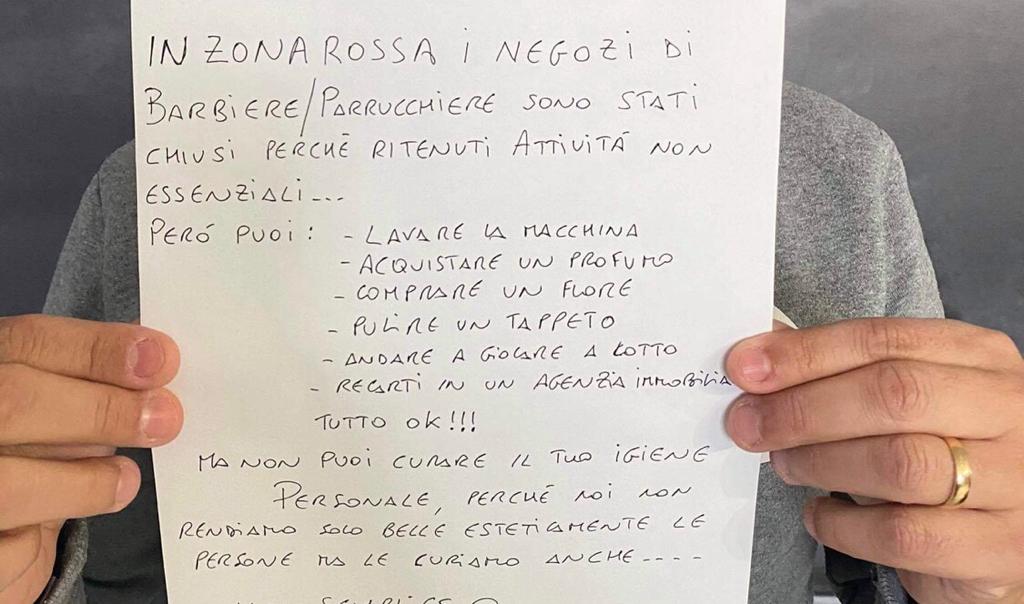 IN ZONA ROSSA I NEGOZI DI
BARBIERE/PARRUCCHIERE SONO STATI
CHIUSI PERCHÉ RITENUTI ATTIVITÁ NON
ESSENZIALI...
PERÓ PUOI: - LAVARE LA MACCHINA
- ACQUISTARE UN PROFUMO
- COMPRARE UN FIORE
- PULIRE UN TAPPETO
- ANDARE A GIOCARE A LOTTO
- RECARTI IN UN AGENZIA IMMOBILIA
TUTTO OK!!!
MA NON PUOI CURARE IL TUO IGIENE
PERSONALE, PERCHÉ NOI NON
RENDIAMO SOLO BELLE ESTETICAMENTE LE
PERSONE MA LE CURIAMO ANCHE----